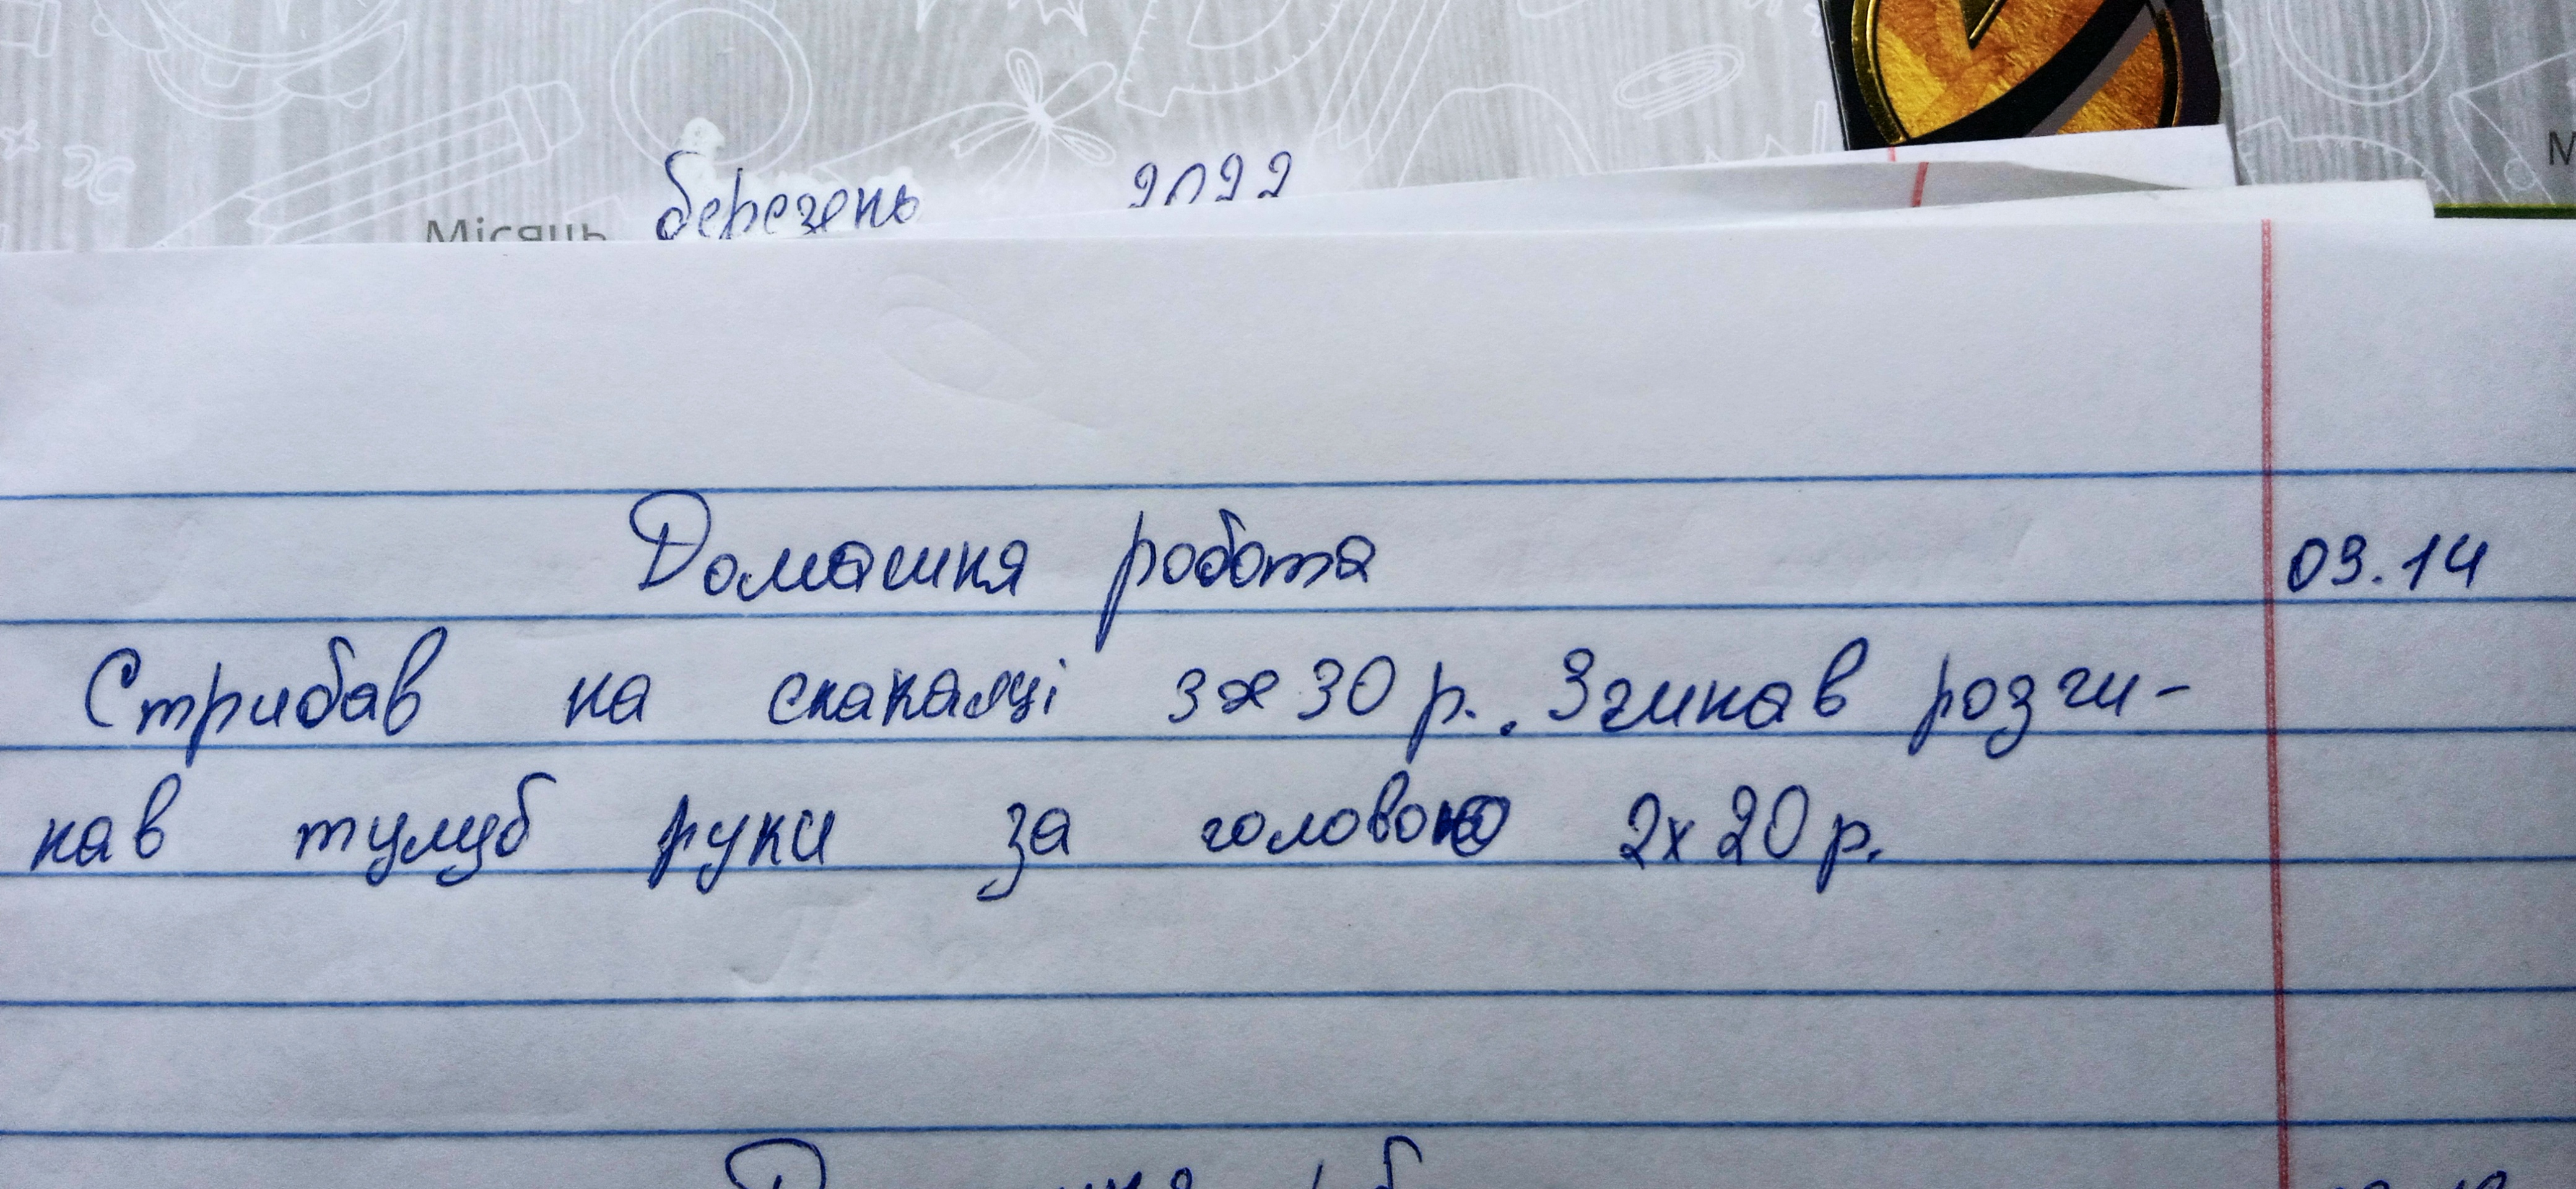 Місяць березень 2022
Домашня робота 03.14
Стрибав на скакалці 3х30р.. Згинав розги-
нав тулуб руки за головою 2х20р.